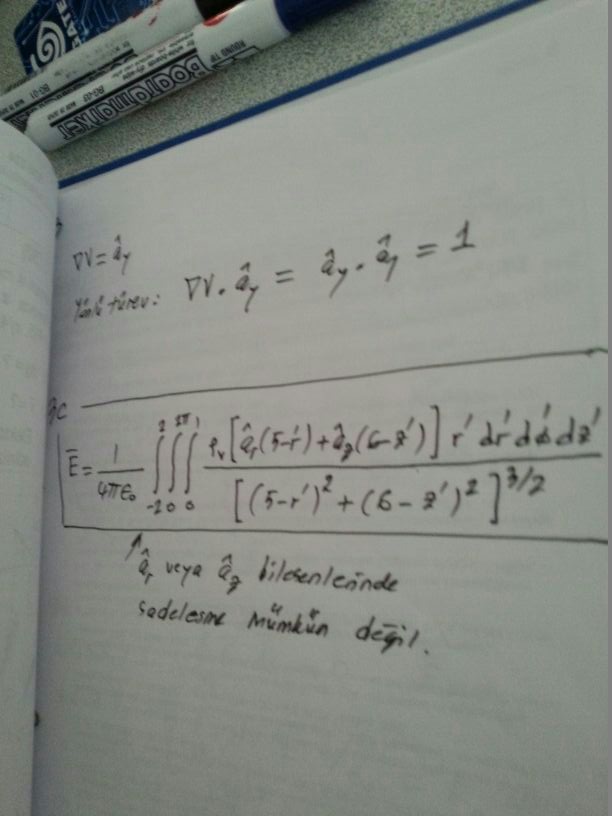 BOARDMARKER
∇V = â_y
Yönlü türev: ∇V . â_y = â_y . â_y = 1
3c
E̅ = 1/(4πε₀) ∫_{-2}^{2} ∫_0^{2π} ∫_0^1 ρ_v [â_r(5-r') + â_z(6-z')] r' dr' dϕ' dz' / [(5-r')² + (6-z')²]^{3/2}
↑ â_r veya â_z bileşenlerinde
sadeleşme mümkün değil.